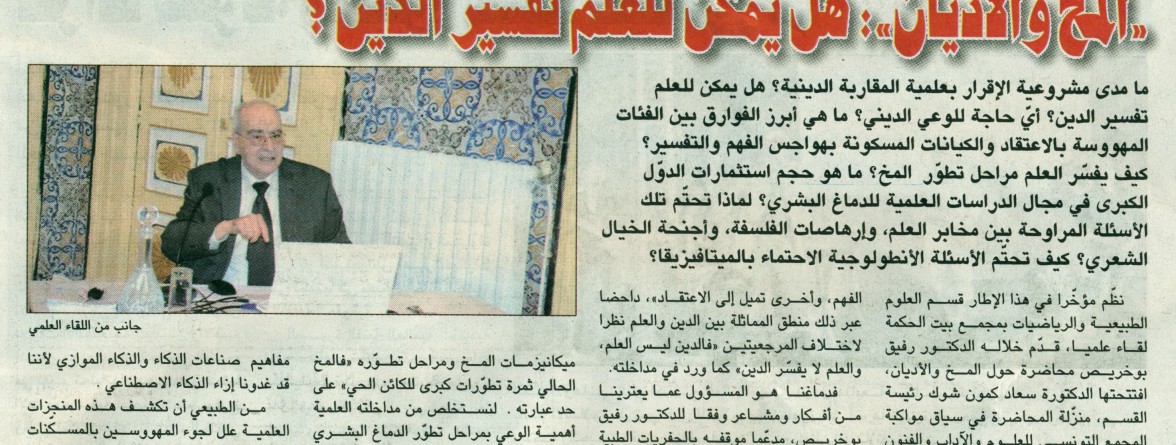 «المخ والأديان»: هل يمكن للعلم تفسير الدين؟
ما مدى مشروعية الإقرار بعلمية المقاربة الدينية؟ هل يمكن للعلم
تفسير الدين؟ أيّ حاجة للوعي الديني؟ ما هي أبرز الفوارق بين الفئات
المهووسة بالاعتقاد والكيانات المسكونة بهواجس الفهم والتفسير؟
كيف يفسّر العلم مراحل تطوّر المخ؟ ما هو حجم استثمارات الدوّل
الكبرى في مجال الدراسات العلمية للدماغ البشري؟ لماذا تحتّم تلك
الأسئلة المراوحة بين مخابر العلم، وإرهاصات الفلسفة، وأجنحة الخيال
الشعري؟ كيف تحتّم الأسئلة الأنطولوجية الاحتماء بالميتافيزيقا؟
نظّم مؤخّرا في هذا الإطار قسم العلوم
الطبيعية والرياضيات بمجمع بيت الحكمة
لقاء علميا، قدّم خلاله الدكتور رفيق
بوخريص محاضرة حول المخ والأديان،
افتتحتها الدكتورة سعاد كمون شوك رئيسة
القسم، منزّلة المحاضرة في سياق مواكبة
المجمع التونسي للعلوم والآداب والفنون
الفهم، وأخرى تميل إلى الاعتقاد»، داحضا
عبر ذلك منطق المماثلة بين الدين والعلم نظرا
لاختلاف المرجعيتين «فالدين ليس العلم،
والعلم لا يفسّر الدين» كما ورد في مداخلته.
فدماغنا هو المسؤول عما يعترينا
من أفكار ومشاعر وفقا للدكتور رفيق
بوخريص، مدعّما موقفه بالحفريات الطبية
جانب من اللقاء العلمي
ميكانيزمات المخ ومراحل تطوّره «فالمخ
الحالي ثمرة تطوّرات كبرى للكائن الحي» على
حد عبارته . لنستخلص من مداخلته العلمية
أهمية الوعي بمراحل تطوّر الدماغ البشري
مفاهيم صناعات الذكاء والذكاء الموازي لأننا
قد غدونا إزاء الذكاء الاصطناعي .
من الطبيعي أن تكشف هذه المنجزات
العلمية علل لجوء المهووسين بالمسكنات